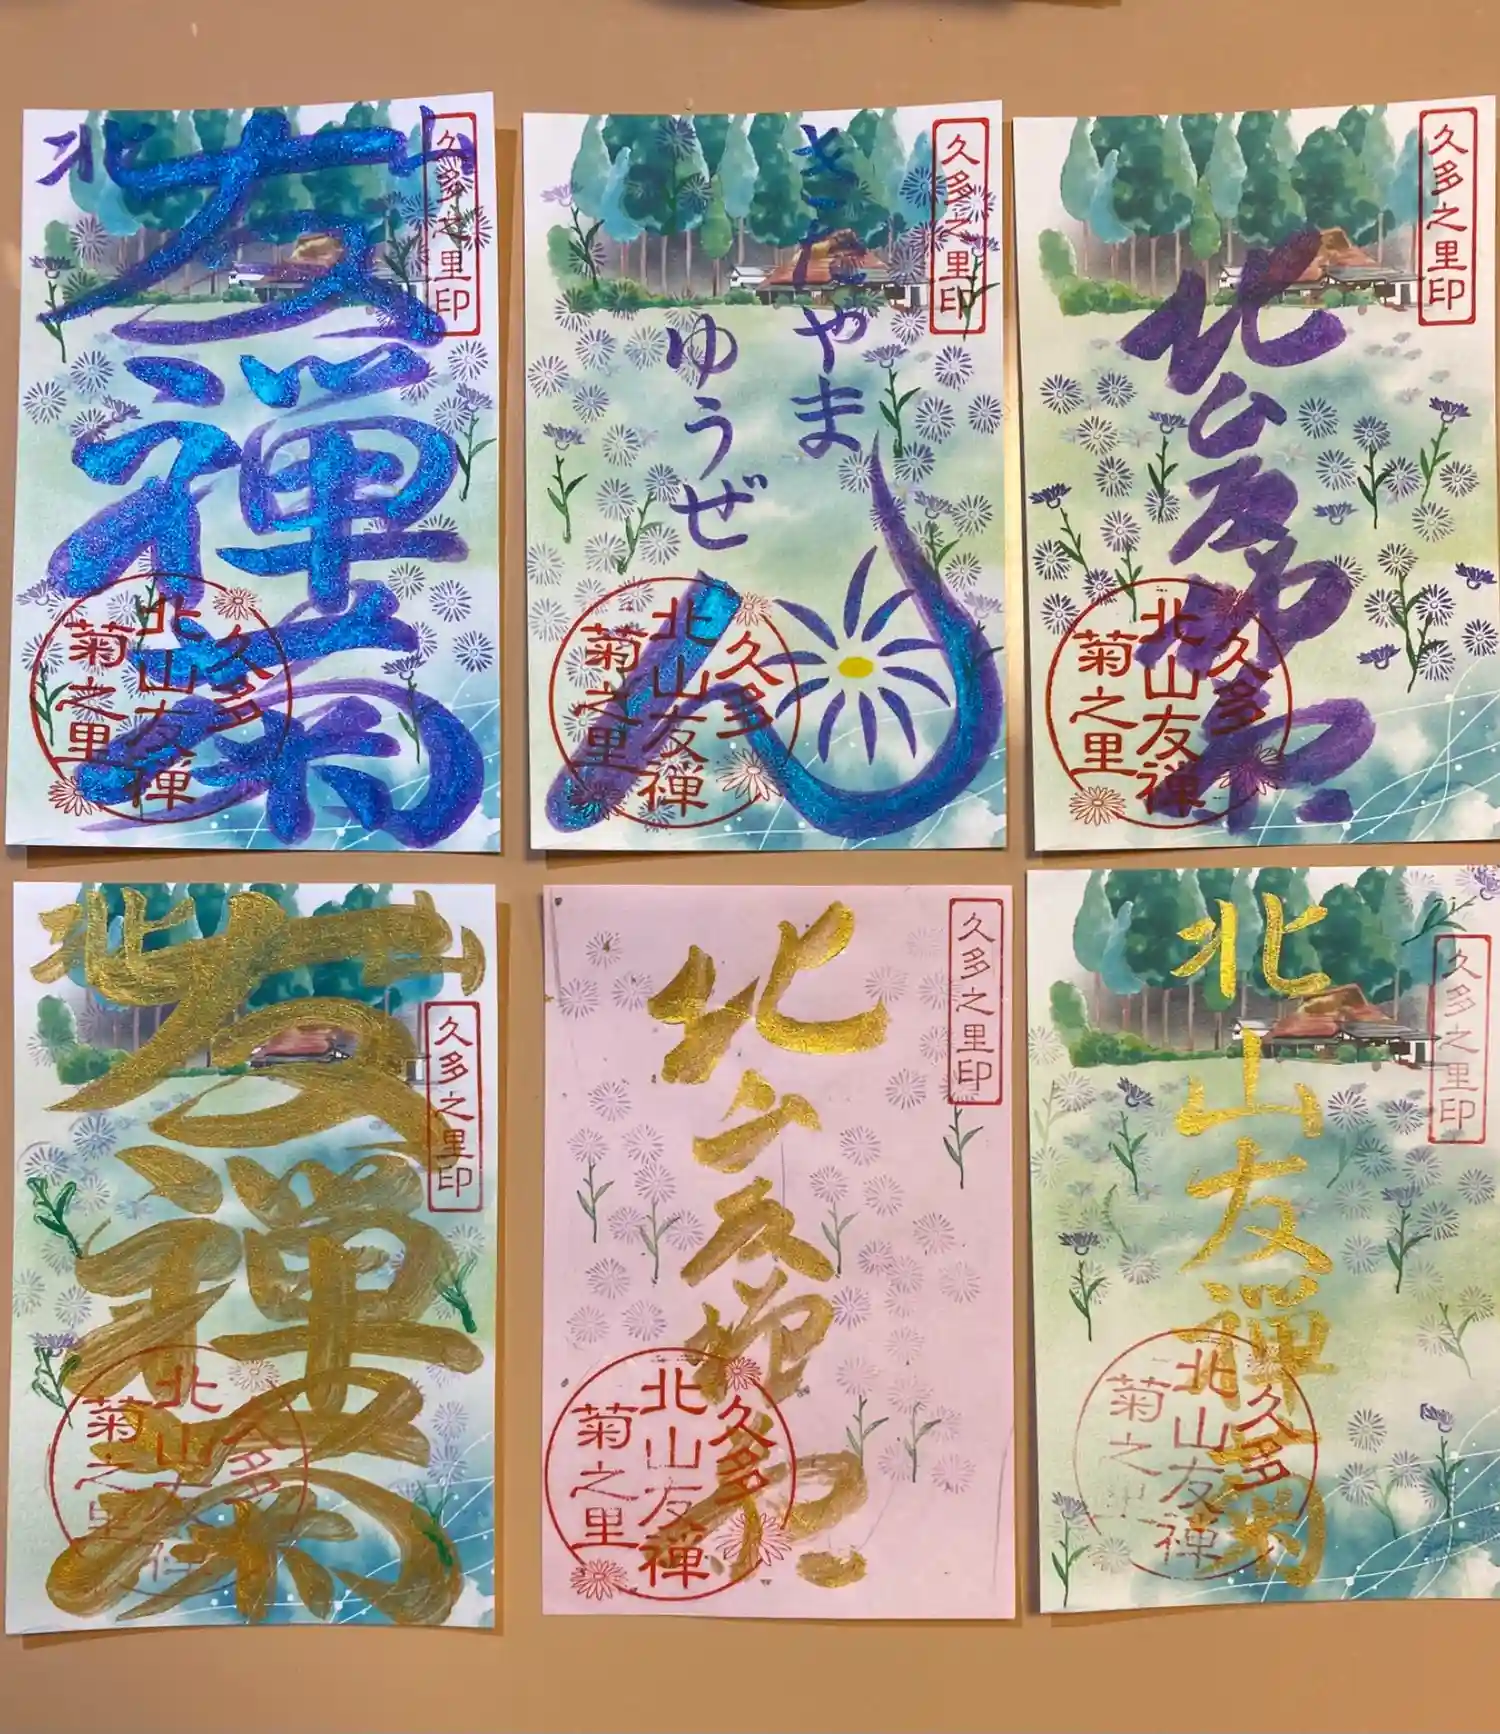 北山
友禅菊
久多之里印
久多
北山友禅
菊之里
きたやま
ゆうぜん
久多之里印
久多
北山友禅
菊之里
北山友禅菊
久多之里印
久多
北山友禅
菊之里
北山
友禅菊
久多之里印
久多
北山友禅
菊之里
北山友禅菊
久多之里印
久多
北山友禅
菊之里
北山友禅菊
久多之里印
久多
北山友禅
菊之